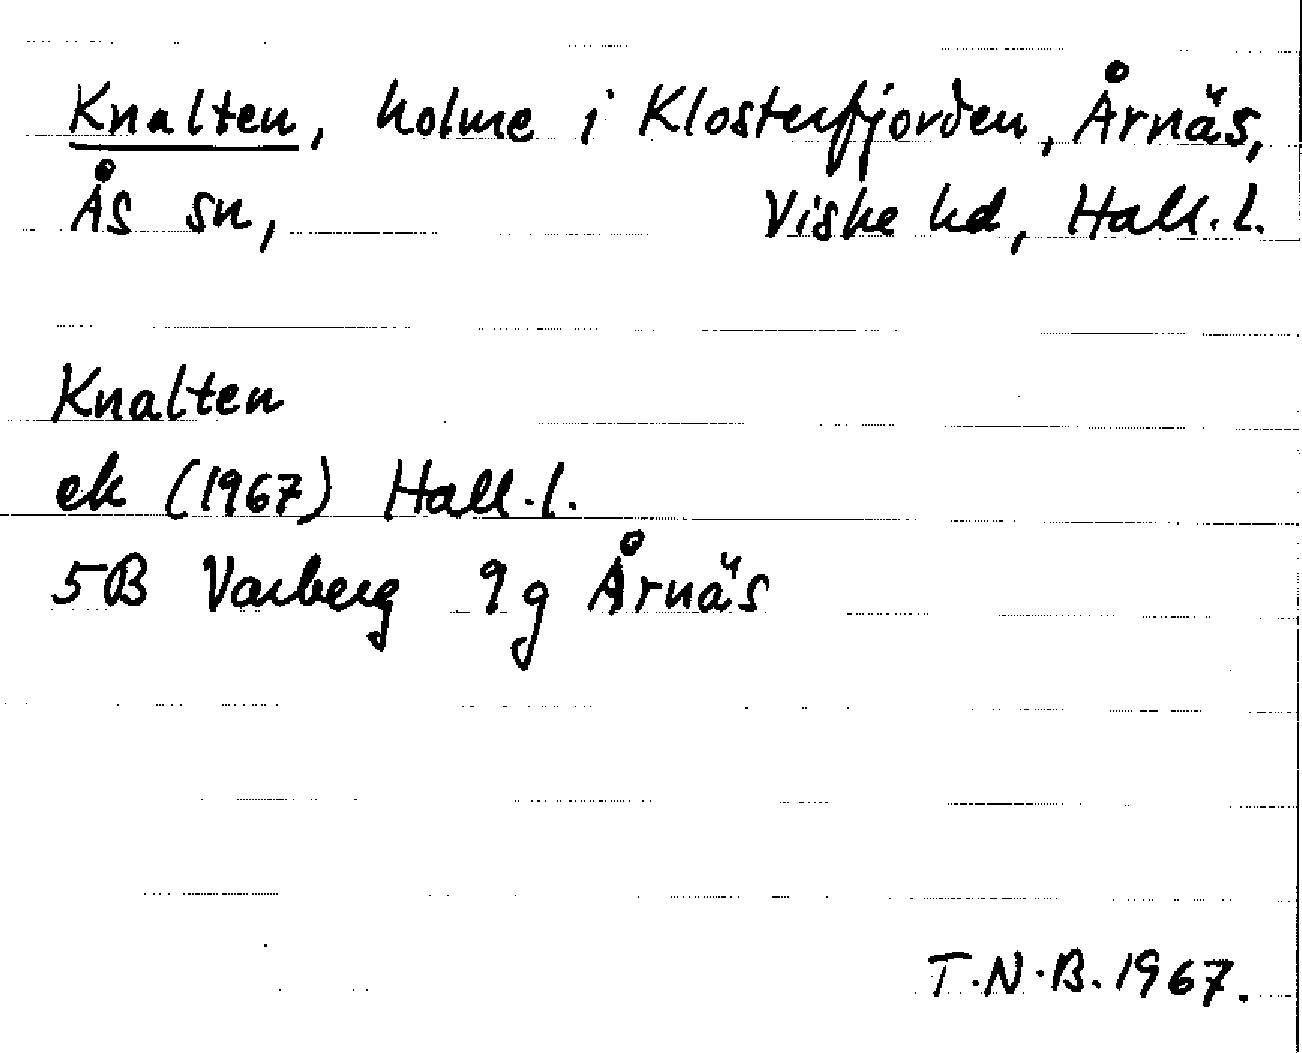 Knalten, holme i Klosterfjorden, Årnäs,
Ås sn, Viske hd, Hall. l.
Knalten
ek (1967) Hall. l.
5B Varberg 9g Årnäs
T.N.B. 1967.